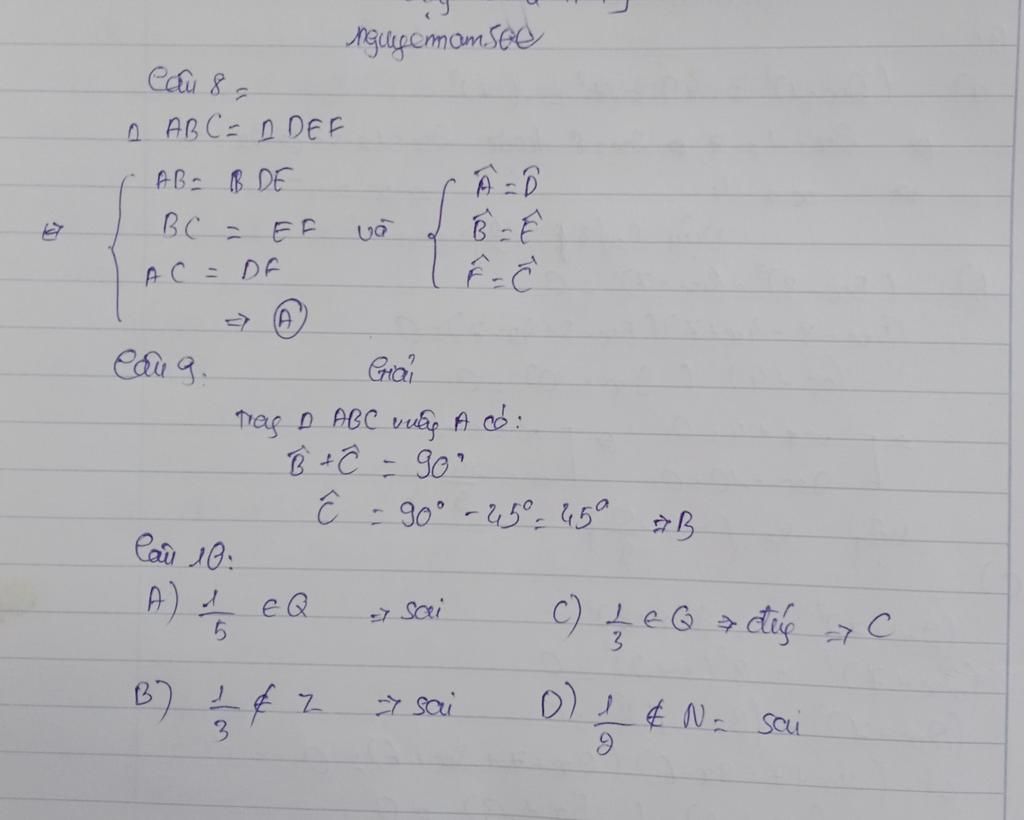 nguyetnam5GE
Câu 8 =
Δ ABC = Δ DEF
AB = DE
Â = D̂
⇔ BC = EF và B̂ = Ê
AC = DF
F̂ = Ĉ
⇒ A
Câu 9. Giải
Trong Δ ABC vuông A có:
B̂ + Ĉ = 90°
Ĉ = 90° - 45° = 45° ⇒ B
Câu 10:
A) 1/5 ∈ Q ⇒ sai C) 1/3 ∈ Q ⇒ đúng ⇒ C
B) 1/3 ∉ Z ⇒ sai D) 1/2 ∉ N = sai